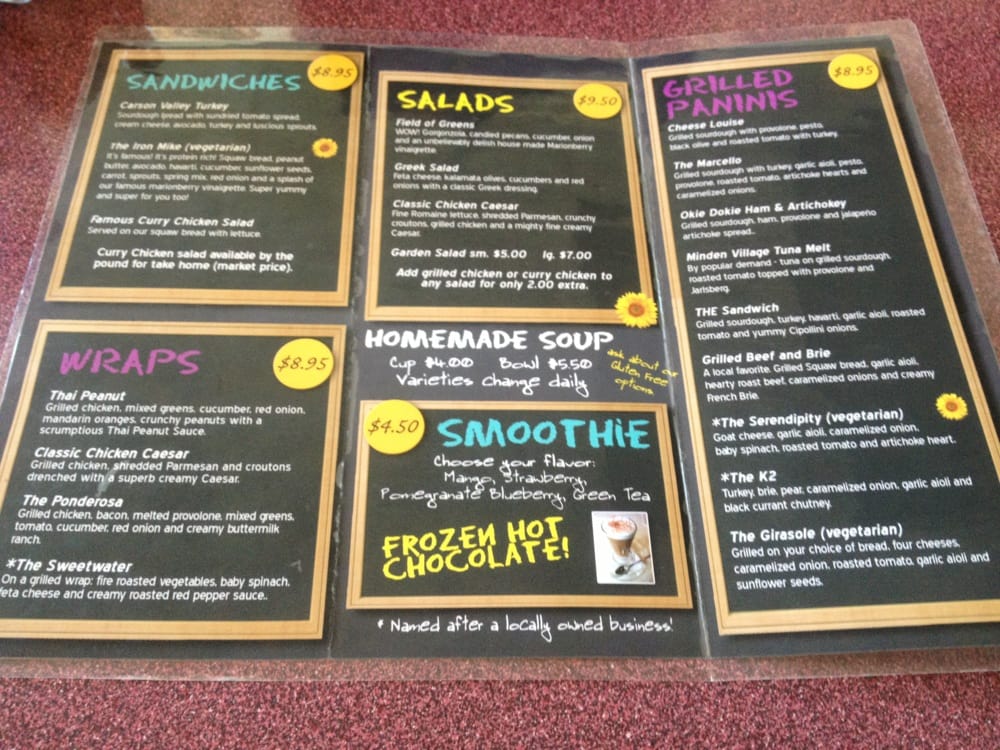 SANDWICHES
$8.95
Carson Valley Turkey
Sourdough bread with sundried tomato spread,
cream cheese, avocado, turkey and luscious sprouts.
The Iron Mike (vegetarian)
It's famous! It's protein rich! Squaw bread, peanut
butter, avocado, havarti, cucumber, sunflower seeds,
carrot, sprouts, spring mix, red onion and a splash of
our famous marionberry vinaigrette. Super yummy
and super for you too!
Famous Curry Chicken Salad
Served on our squaw bread with lettuce.
Curry Chicken salad available by the
pound for take home (market price).
WRAPS
$8.95
Thai Peanut
Grilled chicken, mixed greens, cucumber, red onion,
mandarin oranges, crunchy peanuts with a
scrumptious Thai Peanut Sauce.
Classic Chicken Caesar
Grilled chicken, shredded Parmesan and croutons
drenched with a superb creamy Caesar.
The Ponderosa
Grilled chicken, bacon, melted provolone, mixed greens,
tomato, cucumber, red onion and creamy buttermilk
ranch.
*The Sweetwater
On a grilled wrap: fire roasted vegetables, baby spinach,
feta cheese and creamy roasted red pepper sauce..
SALADS
$9.50
Field of Greens
WOW! Gorgonzola, candied pecans, cucumber, onion
and an unbelievably delish house made Marionberry
vinaigrette.
Greek Salad
Feta cheese, kalamata olives, cucumbers and red
onions with a classic Greek dressing.
Classic Chicken Caesar
Fine Romaine lettuce, shredded Parmesan, crunchy
croutons, grilled chicken and a mighty fine creamy
Caesar.
Garden Salad sm. $5.00 lg. $7.00
Add grilled chicken or curry chicken to
any salad for only 2.00 extra.
HOMEMADE SOUP
Cup $4.00 Bowl $5.50
Varieties change daily
ask about our
Gluten Free
options
$4.50
SMOOTHIE
Choose your flavor:
Mango, Strawberry,
Pomegranate Blueberry, Green Tea
FROZEN HOT
CHOCOLATE!
* Named after a locally owned business!
GRILLED
PANINIS
$8.95
Cheese Louise
Grilled sourdough with provolone, pesto,
black olive and roasted tomato with turkey.
The Marcello
Grilled sourdough with turkey, garlic aioli, pesto,
provolone, roasted tomato, artichoke hearts and
caramelized onions.
Okie Dokie Ham & Artichokey
Grilled sourdough, ham, provolone and jalapeño
artichoke spread..
Minden Village Tuna Melt
By popular demand - tuna on grilled sourdough,
roasted tomato topped with provolone and
Jarlsberg.
THE Sandwich
Grilled sourdough, turkey, havarti, garlic aioli, roasted
tomato and yummy Cipollini onions.
Grilled Beef and Brie
A local favorite. Grilled Squaw bread, garlic aioli,
hearty roast beef, caramelized onions and creamy
French Brie.
*The Serendipity (vegetarian)
Goat cheese, garlic aioli, caramelized onion,
baby spinach, roasted tomato and artichoke heart.
*The K2
Turkey, brie, pear, caramelized onion, garlic aioli and
black currant chutney.
The Girasole (vegetarian)
Grilled on your choice of bread, four cheeses,
caramelized onion, roasted tomato, garlic aioli and
sunflower seeds.